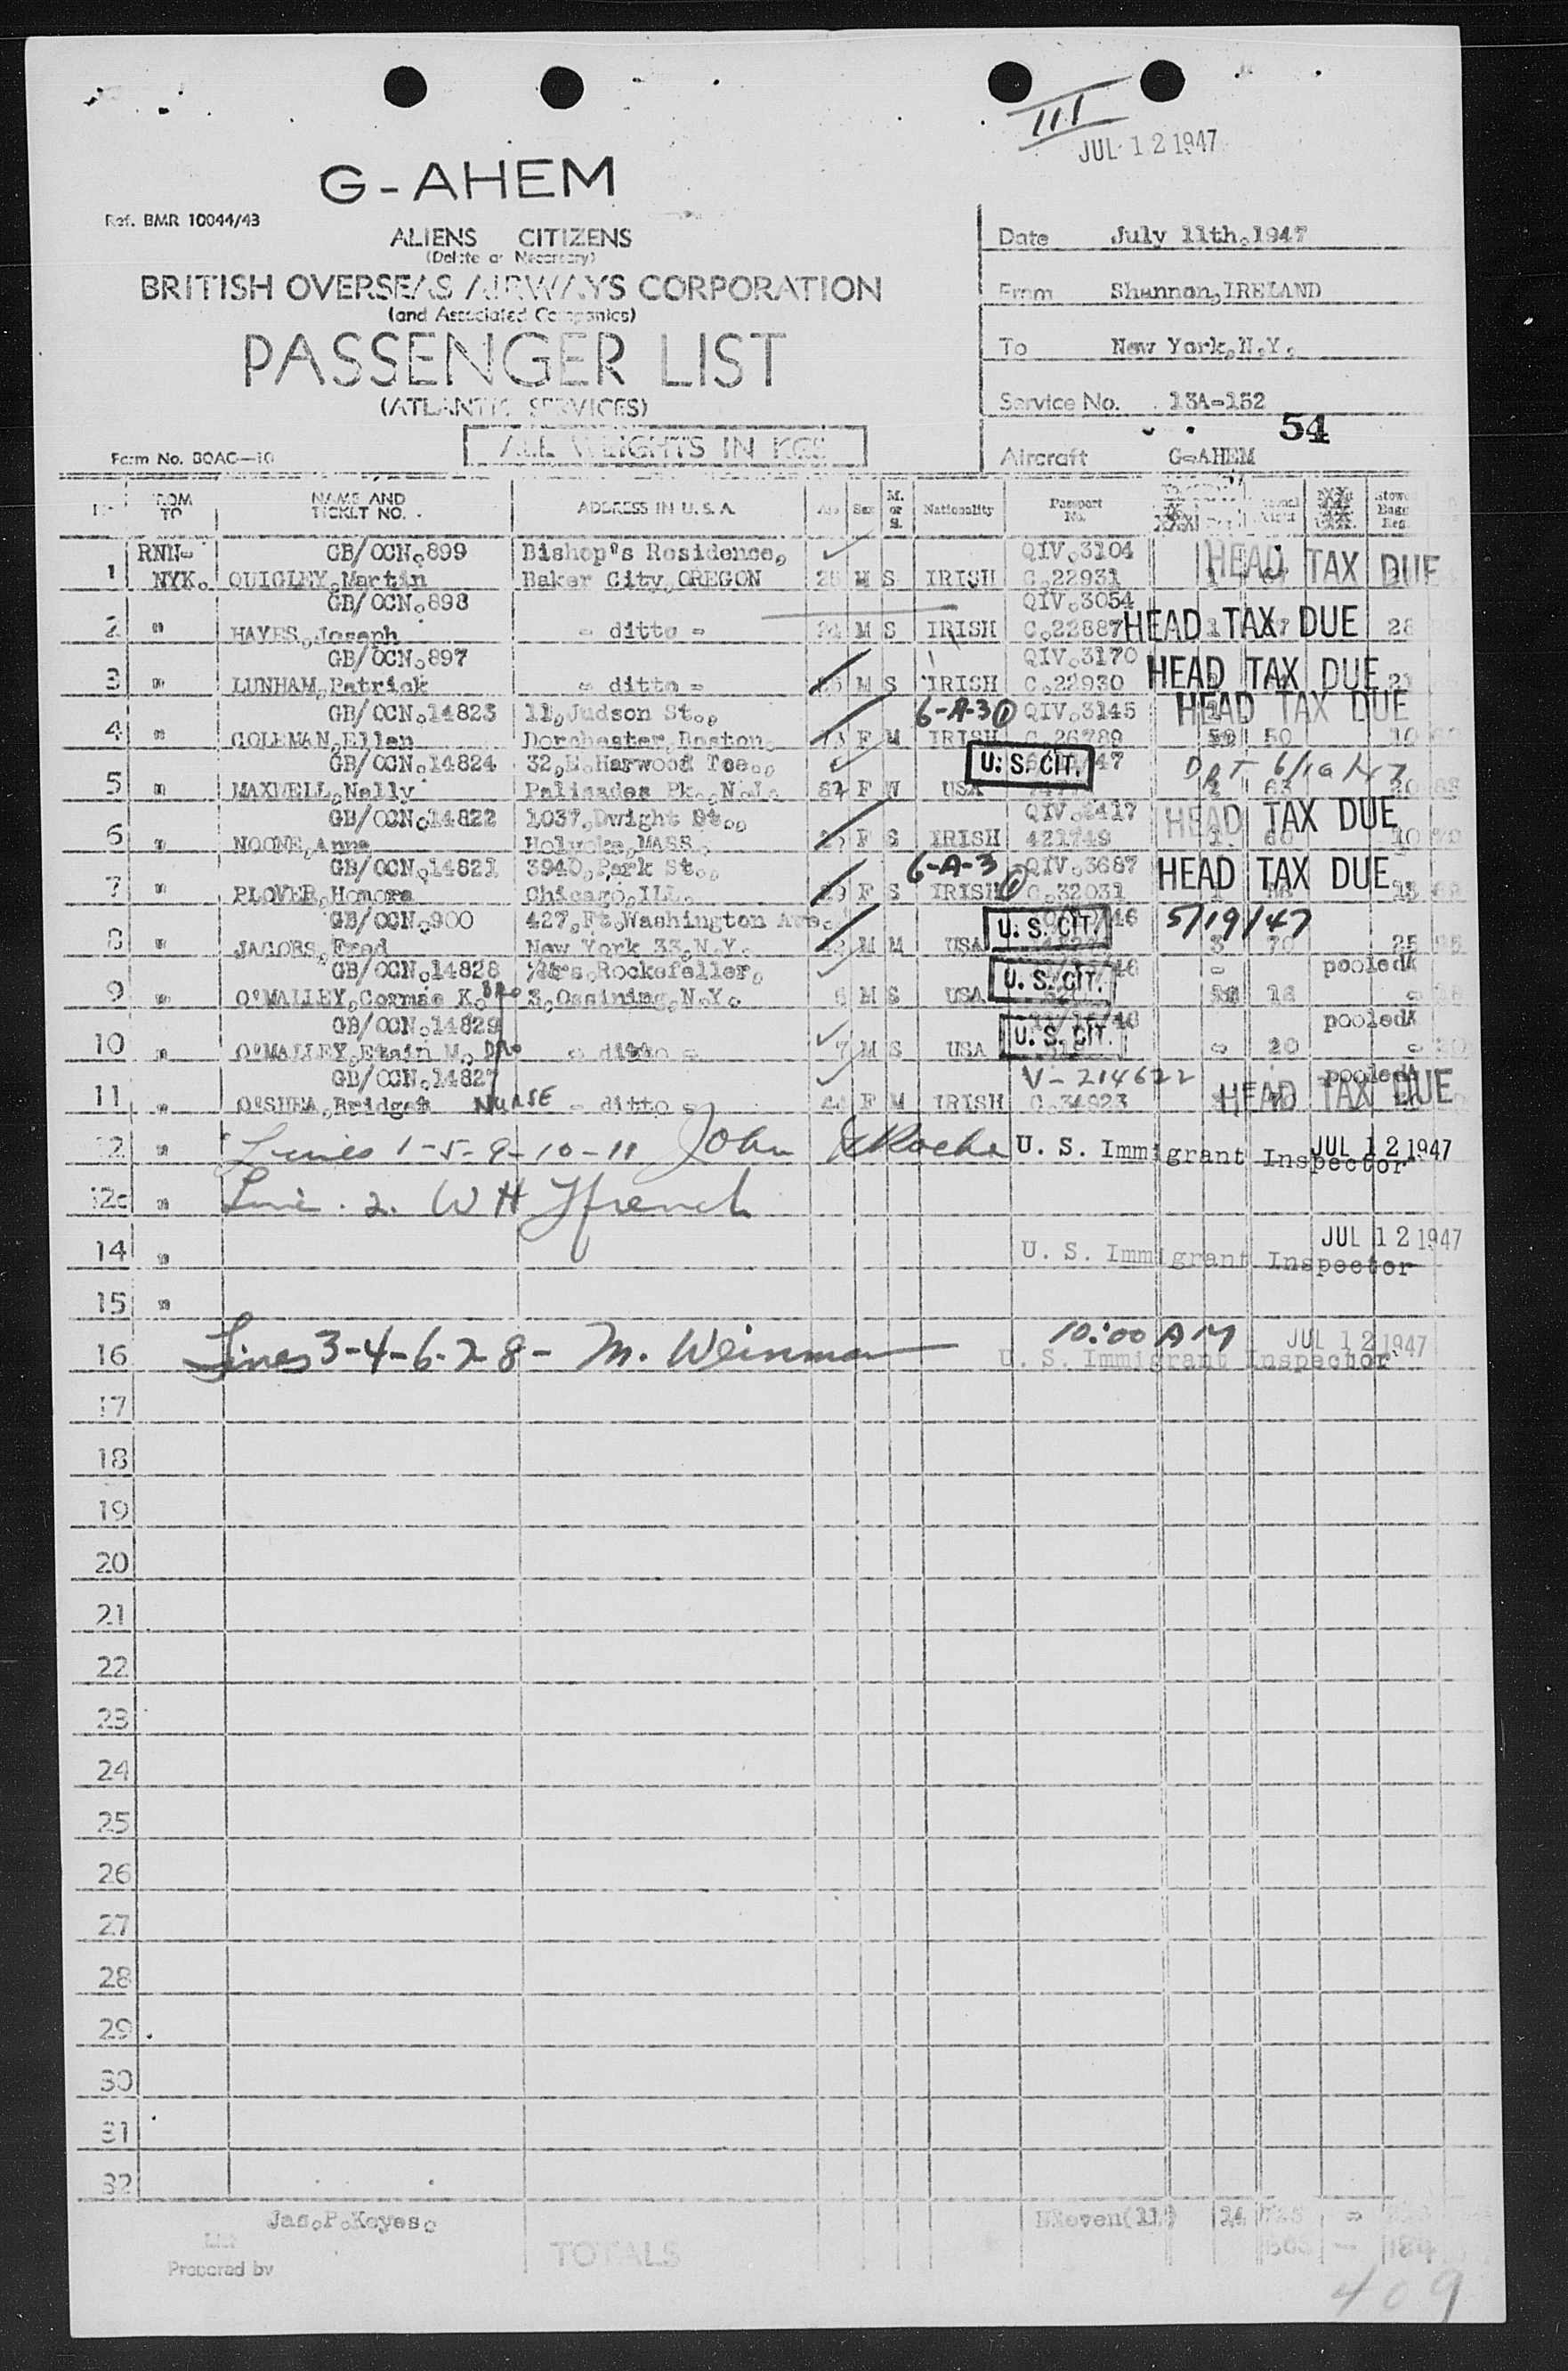 III
JUL 12 1947
G-AHEM
Ref. BMR 10044/43
ALIENS CITIZENS
(Delete as Necessary)
BRITISH OVERSEAS AIRWAYS CORPORATION
(and Associated Companies)
PASSENGER LIST
(ATLANTIC SERVICES)
ALL WEIGHTS IN KGS
Form No. BOAC—10
Date July 11th.1947
From Shannon,IRELAND
To New York,N.Y.
Service No. 13A-152
54
Aircraft G-AHEM
FROM TO NAME AND TICKET NO. ADDRESS IN U.S.A. Sex M. or S. Nationality Passport No.
RNN- GB/OCN.899 Bishop's Residence, QIV.3104 HEAD TAX DUE
1 NYK. QUIGLEY,Martin Baker City,OREGON M S IRISH C.22931
GB/OCN.898 QIV.3054
2 " HAYES,Joseph - ditto - 24 M S IRISH C.22887 HEAD TAX DUE 28
GB/OCN.897 QIV.3170
3 " LUNHAM,Patrick - ditto - M S IRISH C.22930 HEAD TAX DUE
GB/OCN.14823 11,Judson St., 6-A-3 QIV.3145 HEAD TAX DUE
4 " COLEMAN,Ellen Dorchester,Boston. F M IRISH C.26789 50
GB/OCN.14824 32,E.Harwood Tce., U.S. CIT. 47 6/10/47
5 " MAXWELL,Nelly Palisades Pk.,N.J. F W USA 63
GB/OCN.14822 1037,Dwight St., QIV.2417 HEAD TAX DUE
6 " NOONE,Anne Holyoke,MASS. F S IRISH 421749 1 60
GB/OCN.14821 3940,Park St., 6-A-3 QIV.3687 HEAD TAX DUE
7 " PLOVER,Honora Chicago,ILL. 29 F S IRISH C.32031
GB/OCN.900 427,Ft.Washington Ave. U.S. CIT. 46 5/19/47
8 " JACOBS,Fred New York 33,N.Y. M M USA 3 70 25
GB/OCN.14828 Mrs.Rockefeller, U.S. CIT. 46 - pooled
9 " O'MALLEY,Cormac K. Bro 3,Ossining,N.Y. M S USA 16
GB/OCN.14829 U.S. CIT. pooled
10 " O'MALLEY,Etain M. - ditto - 7 M S USA - 20
GB/OCN.14827 V-214622 pooled
11 " O'SHEA,Bridget NURSE - ditto - 44 F M IRISH C.34923 HEAD TAX DUE
12 " Lines 1-5-9-10-11 John U. S. Immigrant Inspector JUL 12 1947
12c " Line. 2. W H Ffrench
14 " U. S. Immigrant Inspector JUL 12 1947
15 "
16 Lines 3-4-6-7-8- M. Weinman 10:00 AM JUL 12 1947
U. S. Immigrant Inspector
17
18
19
20
21
22
23
24
25
26
27
28
29
30
31
32
Jas.P.Keyes. Eleven(11) 24
List Prepared by TOTALS
409